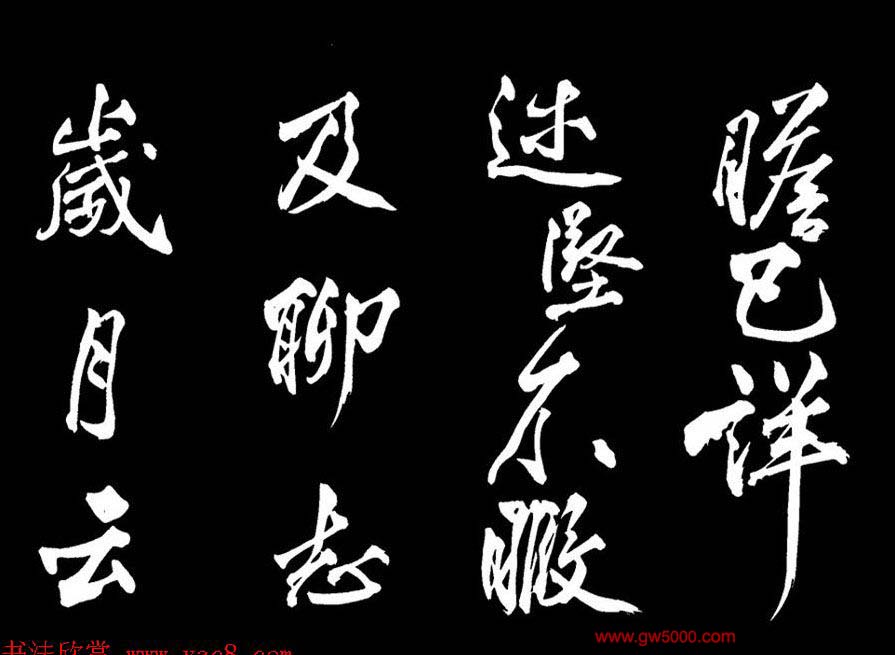 瞻已詳
述堅不暇
及聊志
歲月云
www.gw5000.com
书法欣赏 www.yac8.com